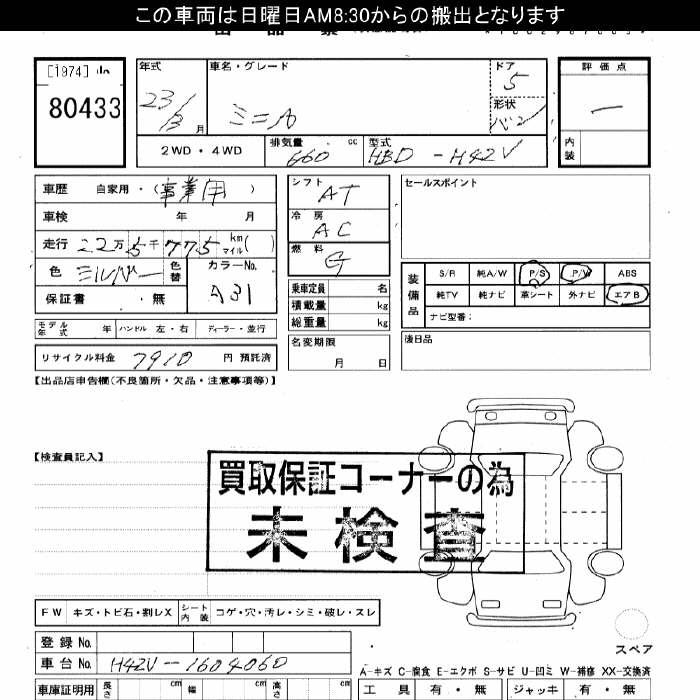 この車両は日曜日AM8:30からの搬出となります
[1974]
80433
年式 車名・グレード ドア 評価点
23/3月 ミニカ 5 一
形状 バン
内装
2WD・4WD 排気量 660 cc 型式 HBD-H42V
車歴 自家用・(事業用) シフト AT セールスポイント
車検 年 月 冷房 AC
走行 22万5千775 km マイル ( ) 燃料 G
色 シルバー 色替 カラーNo. A31
保証書 ・無
乗車定員 名
積載量 kg
総重量 kg
装備品 S/R 純A/W P/S P/W ABS
純TV 純ナビ 革シート 外ナビ エアB
ナビ型番:
モデル年式 年 ハンドル 左・右 ディーラー・並行
名変期限 月 日
後日品
リサイクル料金 7910 円 預託済
【出品店申告欄(不良箇所・欠品・注意事項等)】
【検査員記入】
買取保証コーナーの為
未検査
FW キズ・トビ石・割レX シート内装 コゲ・穴・汚レ・シミ・破レ・スレ
登録No.
車台No. H42V-1604060
スペア
A-キズ C-腐食 E-エクボ S-サビ U-凹ミ W-補修 XX-交換済
車庫証明用 長さ cm 幅 cm 高さ cm 工具 有・無 ジャッキ 有・無